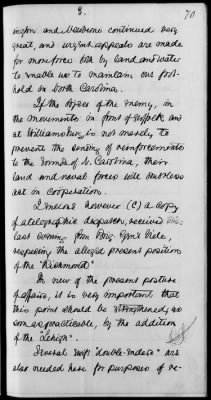 3.
70
ington and Newberne continued very
great, and urgent appeals are made
for more force both by land and water
to enable us to maintain our foot-
hold in North Carolina.
If the object of the Enemy, in
the movements in front of Suffolk and
at Williamsburg is not merely to
prevent the sending of reinforcements
to the Sounds of N. Carolina, their
land and naval forces will doubtless
act in cooperation.
I enclose however (C) a copy
of a telegraphic despatch, received this
last evening from Brig. Genl Viele,
respecting the alleged present position
of the "Richmond"
In view of the present posture
of affairs, it is very important that
this point should be strengthened, as
soon as practicable, by the addition
of the "Lehigh".
Several more "double-enders" are
also needed here for purposes of re-